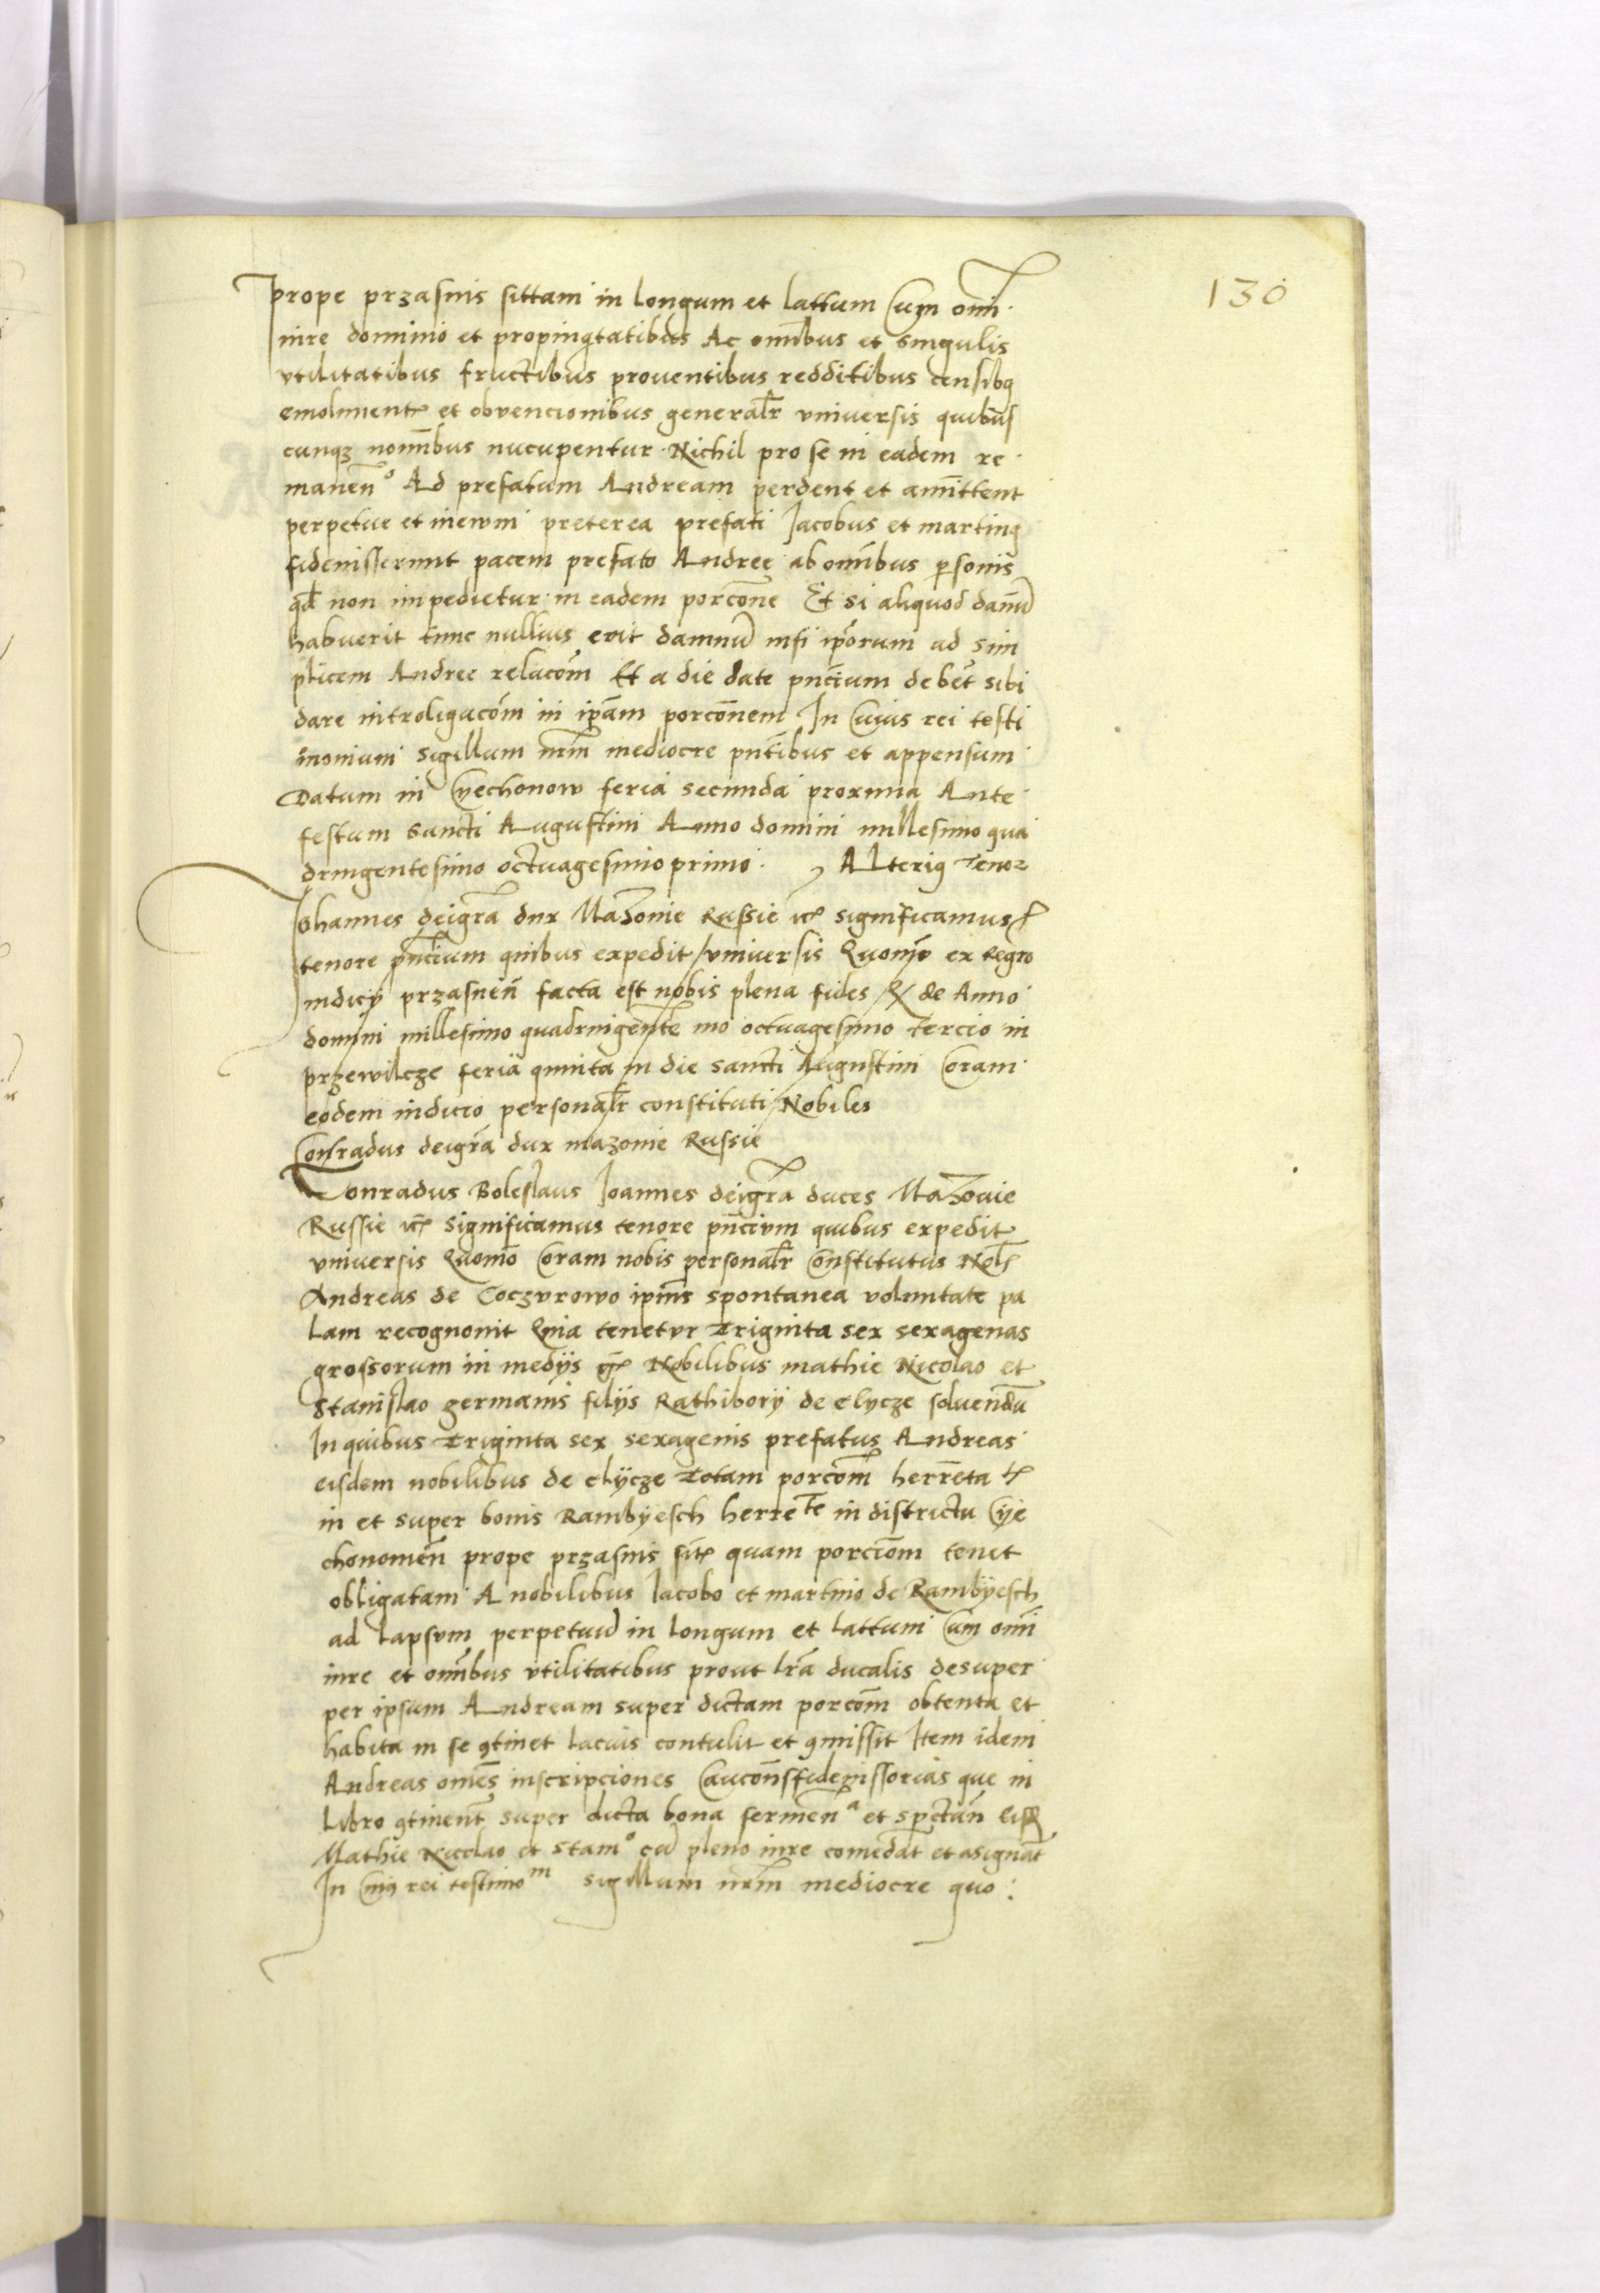 130
prope przasnis sittam in longum et lattum Cum om̄i
iure dominio et propinq̄tatibus Ac om̄ibus et singulis
vtilitatibus fructibus prouentibus redditibus censibꝰ
emolumentꝭ et obvencionibus general̄r vniuersis quibus
cunqꝫ nom̄ibus nucupentur Nichil pro se in eadem re
manen̄º Ad prefatum Andream perdent et amittent
perpetue et inewm preterea prefati Jacobus et martinꝰ
fideiusserunt pacem prefato Andree ab om̄ibus p̱sonis
qd̄ non impedietur in eadem porcōne Et si aliquod dan̄ū
habuerit tunc nullius erit damnū nisi ip̄orum ad sim
plicem Andree relacōm Et a die date pn̄cium debet̄ sibi
dare introligacōm in ip̄am porcōnem In Cuius rei testi
monium sigillum nr̄m mediocre pn̄tibus et appensum
Datum in Cyechonow feria secunda proxima Ante
festum sancti Augustini Anno domini millesimo qua
dringentesimo octuagesimo primo Alteriꝰ Tenor
Johannes deigra̅ dux Mazouie Russie ꝛcꝭ significamus
tenore pn̄cium quibus expedit vniuersis Quom̄o ex Regr̄o
iudicy przasnen̄ facta est nobis plena fides de Anno
domini millesimo quadringente mo octuagesimo Tercio in
przewilcze feria quinta in die sancti Augustini Coram
eodem iudicio personal̄r constituti Nobiles
Conradus deigr̄a dux mazouie Russie
Conradus Boleslaus Joannes deigr̄a duces Mazouie
Russie ꝛcꝭ significamus tenore pn̄cium quibus expedit
vniuersis Quom̄o Coram nobis personal̄r Constitutus Noblꝭ
Andreas de Coczurowo ipius spontanea voluntate pa
lam recognouit Quia tenetur Triginta sex sexagenas
grossorum in medys grꝭ Nobilibus mathie Nicolao et
Stanislao germanis filys Rathibory de elycze soluendū
In quibus Triginta sex sexagenis prefatus Andreas
eisdem nobilibus de elycze Totam porcōm herr̄eta tꝭ
in et super bonis Rambyesch herrete in districtu Cye
chonomen̄ prope przasnis sitꝭ quam porciōm tenet
obligatam A nobilibus Jacobo et martino de Rambyesch
ad lapsum perpetuū in longum et lattum Cum om̄i
iure et om̄ibus vtilitatibus prout lr̄a ducalis desuper
per ipsum Andream super dictam porcōm obtenta et
habita in se ꝯtinet lacius contulit et ꝯmissit Item idem
Andreas om̄es inscripciones Caucōns fideiussorias que in
Libro ꝯtinent̄ super dicta bona et spectan̄
Mathie Nicolao et Stan̄º cū pleno iure comedat et asignat
In Cuiꝰ rei testimoᵐ sigillum nr̄m mediocre quo